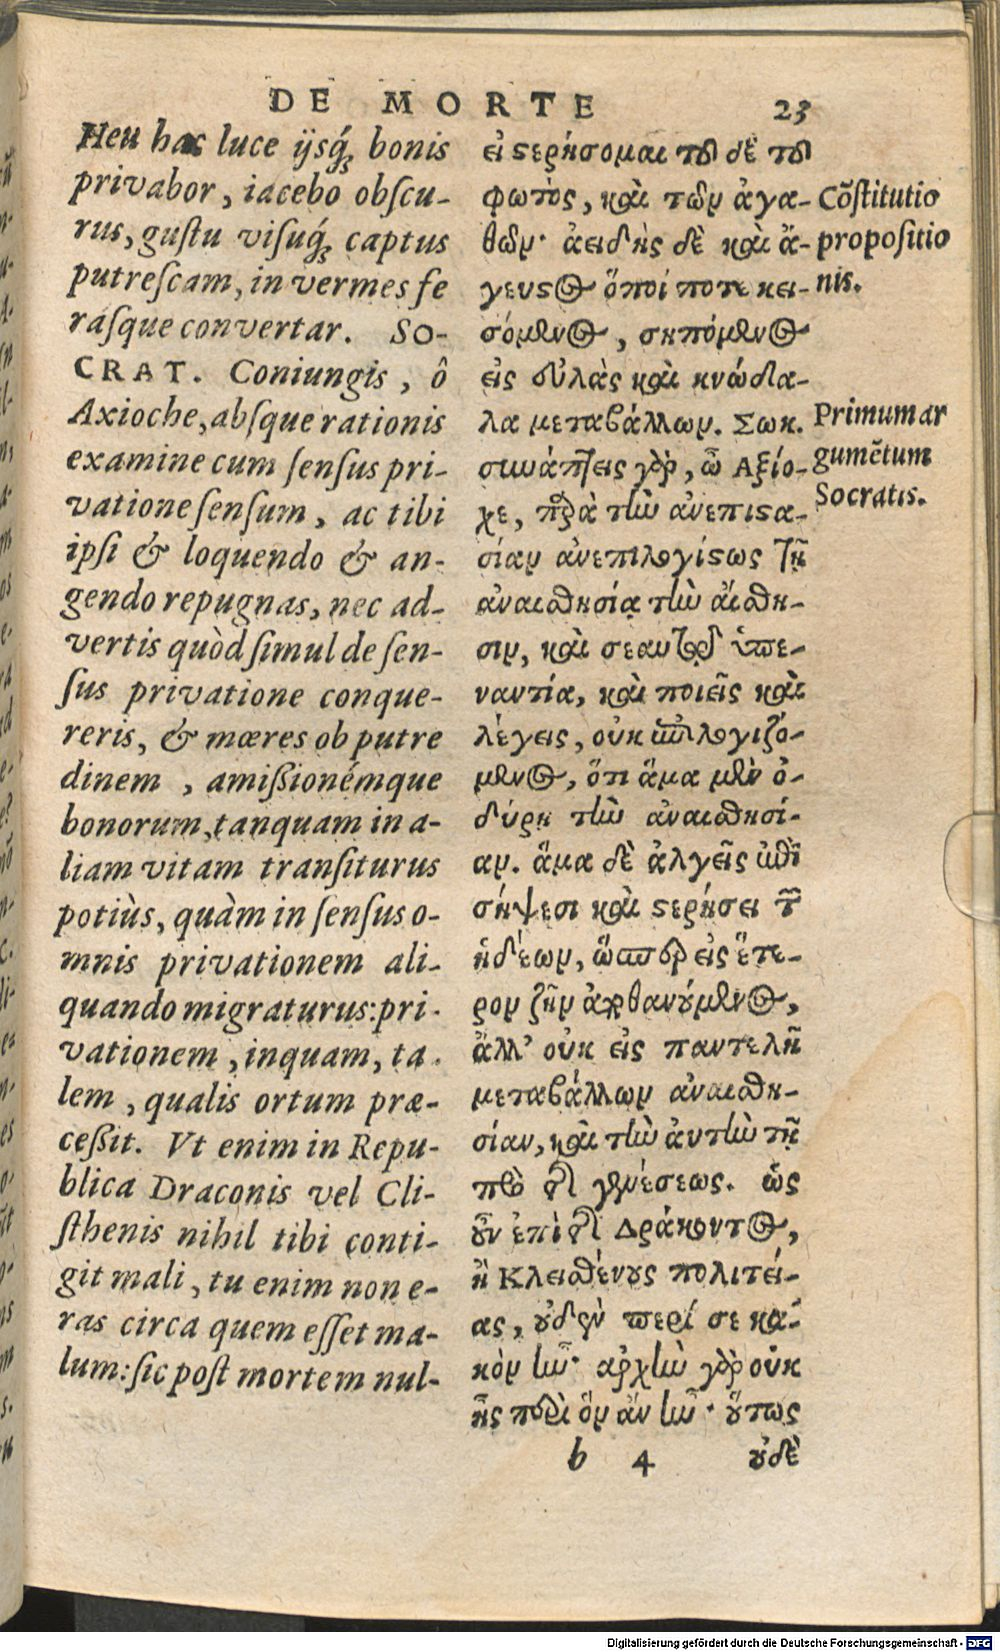 DE MORTE 23
Heu hac luce ijsq́ʒ bonis
privabor, iacebo obscu-
rus, gustu visuq́ʒ captus
putrescam, in vermes fe
rásque convertar. SO-
CRAT. Coniungis, ô
Axioche, absque rationis
examine cum sensus pri-
vatione sensum, ac tibi
ipsi & loquendo & an-
gendo repugnas, nec ad-
vertis quòd simul de sen-
sus privatione conque-
reris, & mœres ob putre
dinem, amissionémque
bonorum, tanquam in a-
liam vitam transiturus
potiùs, quàm in sensus o-
mnis privationem ali-
quando migraturus: pri-
vationem, inquam, ta-
lem, qualis ortum præ-
cessit. Vt enim in Repu-
blica Draconis vel Cli-
sthenis nihil tibi conti-
git mali, tu enim non e-
ras circa quem esset ma-
lum: sic post mortem nul-
εἰ στερήσομαι τοῦ δὲ τοῦ
φωτὸς, καὶ τῶν ἀγα-
θῶν· ἀειδὴς δὲ καὶ ἄ-
γευστος ὅποί ποτε κεί-
σόμενος, σηπόμενος
εἰς εὐλὰς καὶ κνώδα-
λα μεταβάλλων. Σωκ.
συνάπτεις γὰρ, ὦ Αξίο-
χε, παρὰ τὴν ἀνεπιστα-
σίαν ἀνεπιλογίστως τῇ
ἀναισθησίᾳ τὴν αἴσθη-
σιν, καὶ σεαυτῷ ὑπε-
ναντία, καὶ ποιεῖς καὶ
λέγεις, οὐκ ἐπιλογιζό-
μενος, ὅτι ἅμα μὲν ὀ-
δύρῃ τὴν ἀναισθησί-
αν. ἅμα δὲ ἀλγεῖς ἐπὶ
σήψεσι καὶ στερήσει τῶν
ἡδέων, ὥσπερ εἰς ἕτε-
ρον ζῆν ἀποθανούμενος,
ἀλλ' οὐκ εἰς παντελῆ
μεταβάλλων ἀναισθη-
σίαν, καὶ τὴν αὐτὴν τῇ
πρὸ τῆς γενέσεως. ὡς
οὖν ἐπὶ τῆς Δράκοντος,
ἢ Κλεισθένους πολιτεί-
ας, οὐδὲν περί σε κα-
κὸν ἦν· ἀρχὴν γὰρ οὐκ
ἦς περὶ ὃν ἂν ἦν· οὕτως
b 4 οὐδὲ
Cõstitutio
propositio
nis.
Primum ar
gumẽtum
Socratis.
Digitalisierung gefördert durch die Deutsche Forschungsgemeinschaft - DFG